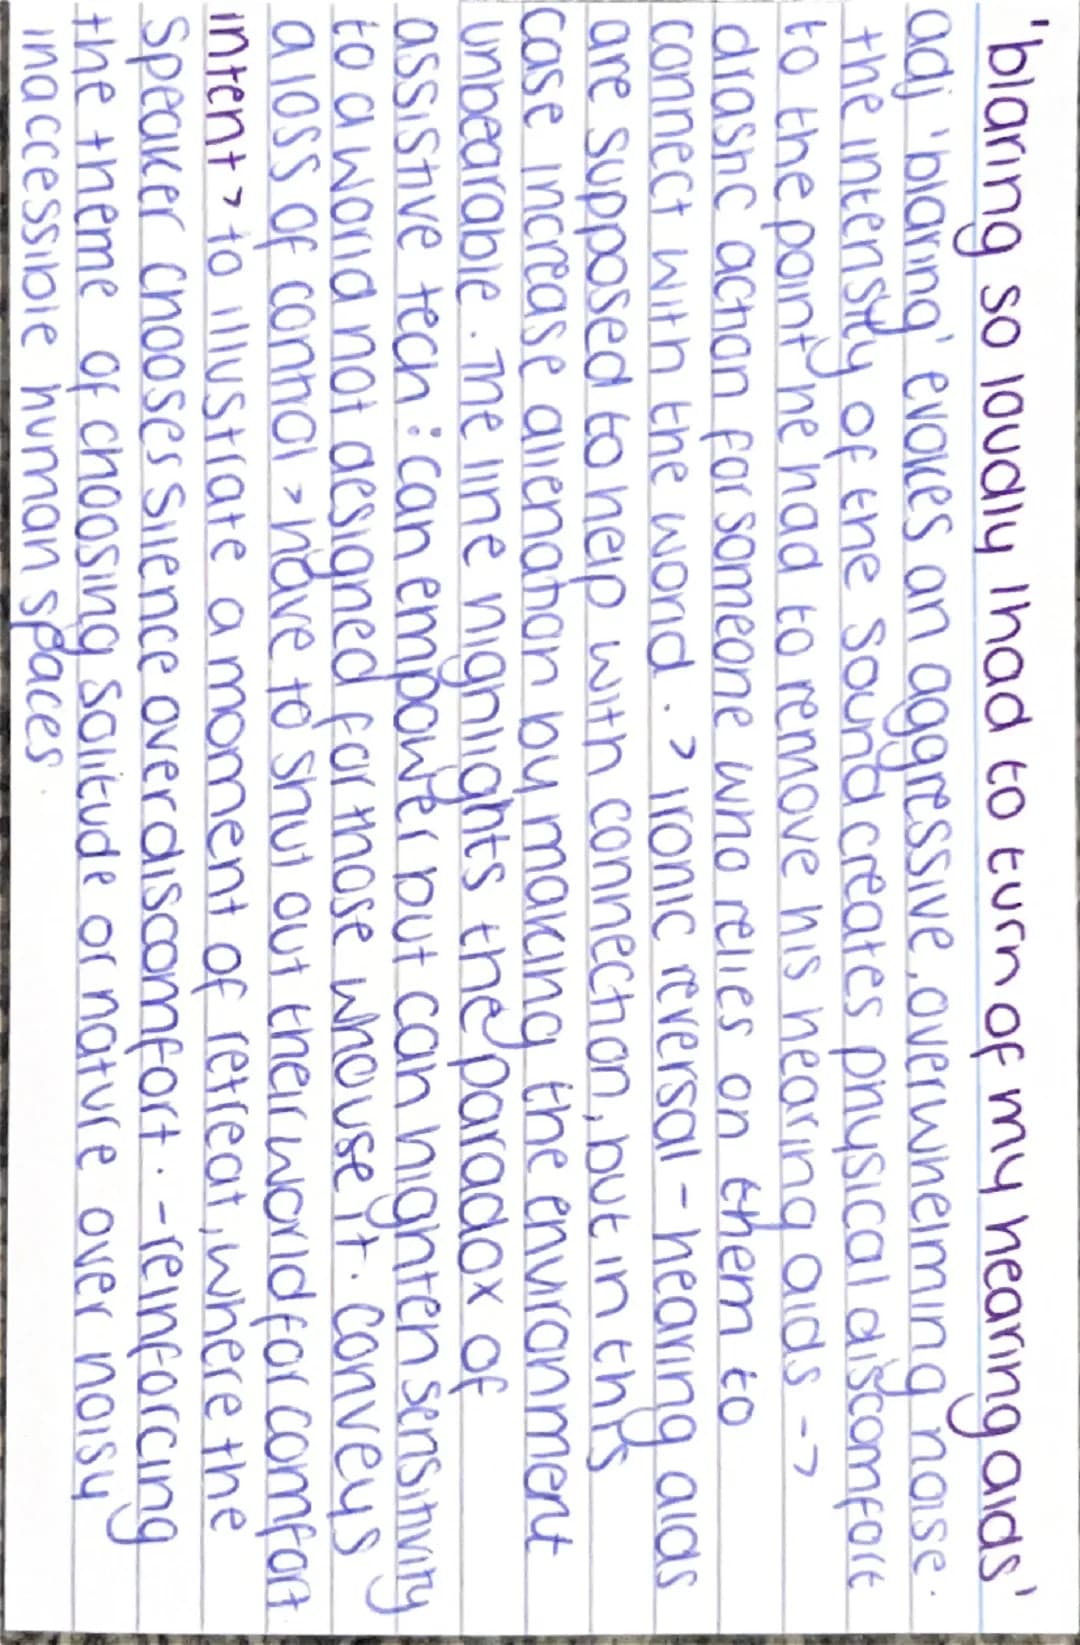 'blaring so loudly I had to turn of my hearing aids'
adj 'blaring' evokes an aggressive, overwhelming noise.
the intensity of the sound creates physical discomfort
to the point he had to remove his hearing aids ->
drastic action for someone who relies on them to
connect with the world. > ironic reversal - hearing aids
are supposed to help with connection, but in this
case increase alienation by making the environment
unbearable. The line highlights the paradox of
assistive tech : can empower but can highten sensitivity
to a world not designed for those who use it. Conveys
a loss of control > have to shut out their world for comfort
intent > to illustrate a moment of retreat, where the
speaker chooses silence over discomfort. - reinforcing
the theme of choosing solitude or nature over noisy
inaccessible human spaces.